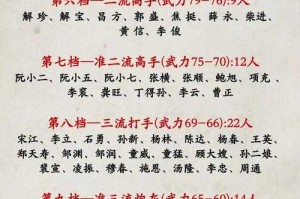 第六档—二流高手(武力79-76):9人
解珍、解宝、昌方、郭盛、焦挺、薛永、柴进、
黄信、李俊
第七档—准二流高手(武力75-70):12人
阮小二、阮小五、阮小七、张横、张顺、鲍旭、项充、
李衮、龚旺、丁得孙、李云、曹正
第八档—三流打手(武力69-66):22人
宋江、李立、石勇、孙新、杨林、陈达、杨春、王英、
郑天寿、邹渊、邹润、童威、童猛、顾大嫂、孙二娘、
裴宣、凌振、穆春、施恩、汤隆、李忠、周通
第九档—准三流炮灰(武力65-60):14人